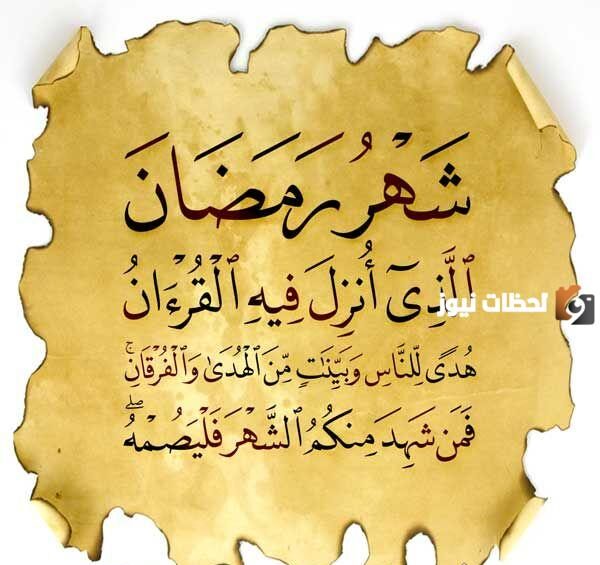 شَهْرُ رَمَضَانَ
ٱلَّذِىٓ أُنزِلَ فِيهِ ٱلْقُرْءَانُ
لحظات نيوز
هُدًى لِّلنَّاسِ وَبَيِّنَٰتٍ مِّنَ ٱلْهُدَىٰ وَٱلْفُرْقَانِ ۚ
فَمَن شَهِدَ مِنكُمُ ٱلشَّهْرَ فَلْيَصُمْهُ ۖ